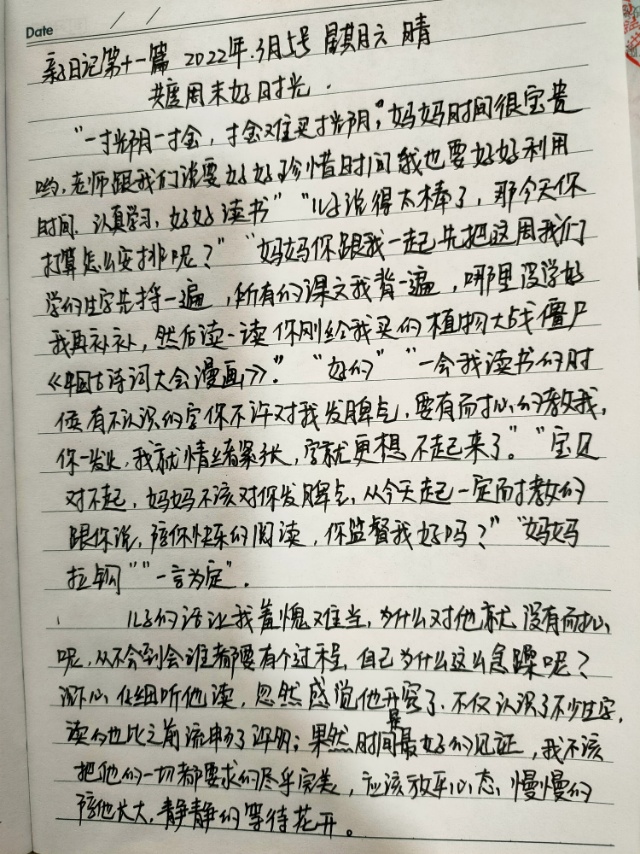 Date
亲子日记第十一篇 2022年.3月5号 星期六 晴
共度周末好时光.
"一寸光阴一寸金,寸金难买寸光阴,"妈妈时间很宝贵
哟,老师跟我们说要好好珍惜时间我也要好好利用
时间.认真学习,好好读书" "儿子说得太棒了,那今天你
打算怎么安排呢?" "妈妈你跟我一起先把这周我们
学的生字先捋一遍,所有的课文我背一遍,哪里没学好
我再补补,然后读一读你刚给我买的植物大战僵尸
《中国古诗词大会漫画》." "好的" "一会我读书的时
候有不认识的字你不许对我发脾气,要有耐心的教我,
你一发火,我就情绪紧张,字就更想不起来了." "宝贝
对不起,妈妈不该对你发脾气,从今天起一定耐教的
跟你说,陪你快乐的阅读,你监督我好吗?" "妈妈
拉钩" "一言为定".
儿子的话让我羞愧难当,为什么对他就没有耐心
呢,从不会到会谁都要有个过程,自己为什么这么急躁呢?
潜心仔细听他读,忽然感觉他开窍了,不仅认识了不少生字,
读的也比之前流畅了许多;果然时间是最好的见证,我不该
把他的一切都要求的尽乎完美,应该放平心态,慢慢的
陪他长大,静静的等待花开。